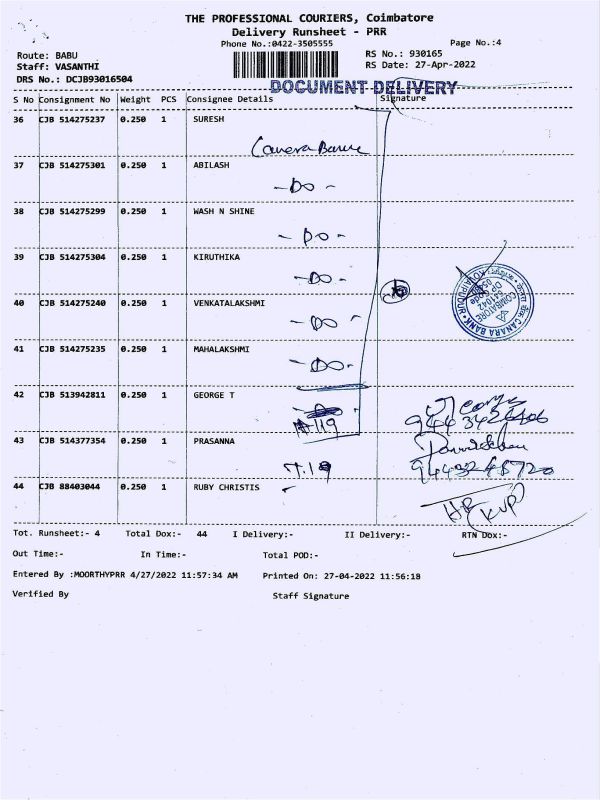 THE PROFESSIONAL COURIERS, Coimbatore
Delivery Runsheet - PRR
Phone No.:0422-3505555 Page No.:4
Route: BABU RS No.: 930165
Staff: VASANTHI RS Date: 27-Apr-2022
DRS No.: DCJB93016504
DOCUMENT DELIVERY
S No Consignment No Weight PCS Consignee Details Signature
36 CJB 514275237 0.250 1 SURESH
Canera Bank
37 CJB 514275301 0.250 1 ABILASH
-Do-
38 CJB 514275299 0.250 1 WASH N SHINE
-Do-
39 CJB 514275304 0.250 1 KIRUTHIKA
-Do-
40 CJB 514275240 0.250 1 VENKATALAKSHMI
-Do-
CANARA BANK
COIMBATORE
DP 541042
41 CJB 514275235 0.250 1 MAHALAKSHMI
-Do-
42 CJB 513942811 0.250 1 GEORGE T
43 CJB 514377354 0.250 1 PRASANNA
44 CJB 88403044 0.250 1 RUBY CHRISTIS
Tot. Runsheet:- 4 Total Dox:- 44 I Delivery:- II Delivery:- RTN Dox:-
Out Time:- In Time:- Total POD:-
Entered By :MOORTHYPRR 4/27/2022 11:57:34 AM Printed On: 27-04-2022 11:56:18
Verified By Staff Signature